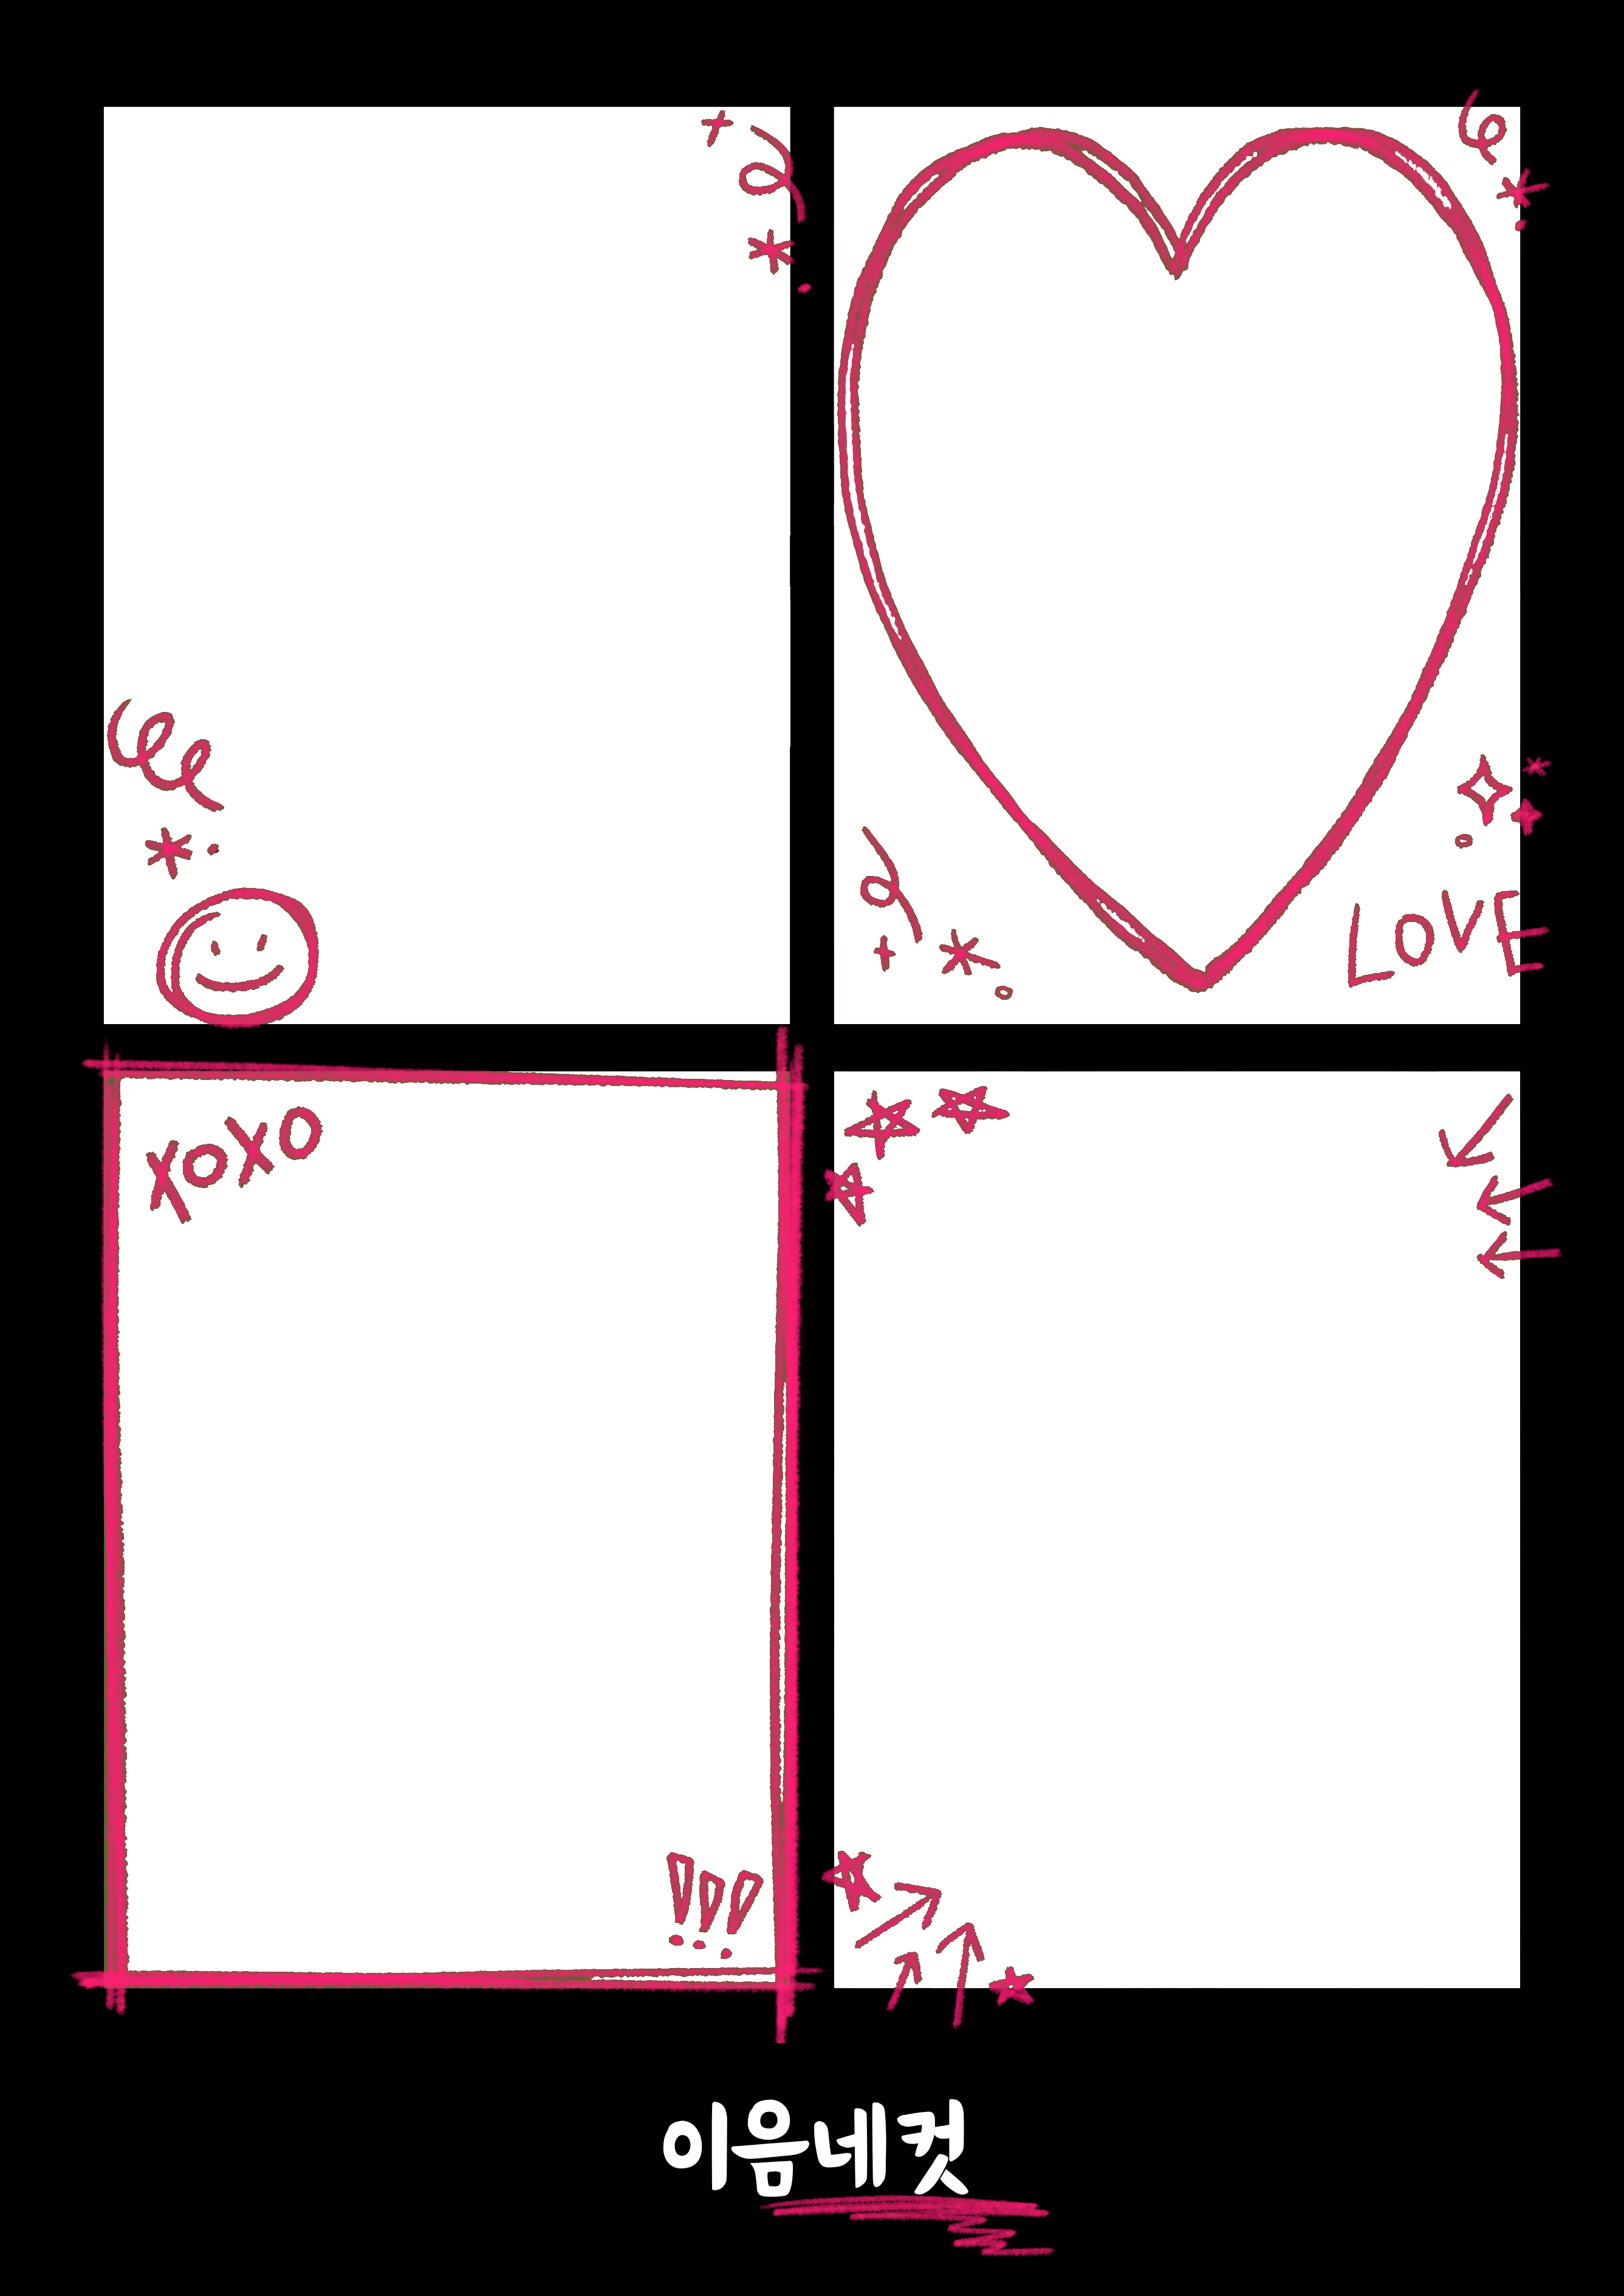 LOVE
XOXO
!!!
이음네컷